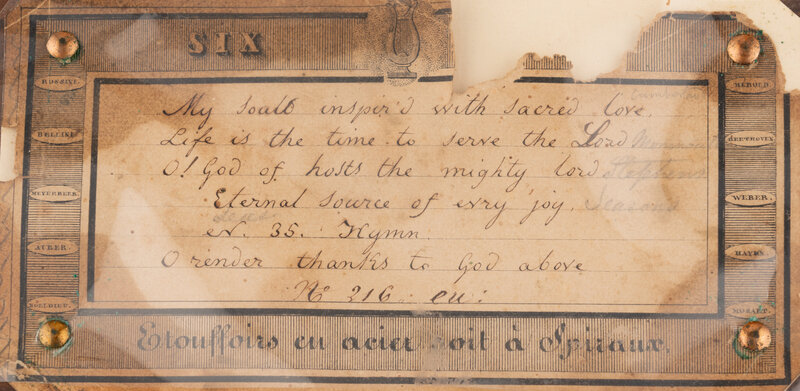 SIX
ROSSINI.
BELLINI
MEYERBEER.
AUBER.
BOELDIEU.
My soall inspir'd with sacred love.
Life is the time to serve the Load
O! God of hosts the mighty lord Stephens
Eternal source of evry joy. Seasons
ev. 35. Hymn
O render thanks to God above
No 216. eu:
HEROLD.
BEETHOVEN.
WEBER.
HAYDN.
MOZART.
Etouffoirs en acier soit à Spiraux.